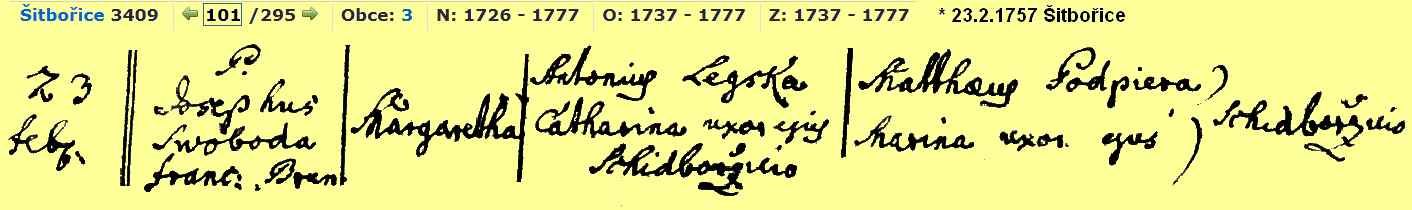 Šitbořice 3409 101 /295 Obce: 3 N: 1726 - 1777 O: 1737 - 1777 Z: 1737 - 1777 * 23.2.1757 Šitbořice
23
febr.
P.
Josephus
Swoboda
Franc: Brun
Margaretha
Antonius Legska
Catharina uxor ejus
Schidboržicio
Matthaeus Podpiera
Marina uxor ejus
Schidboržicio